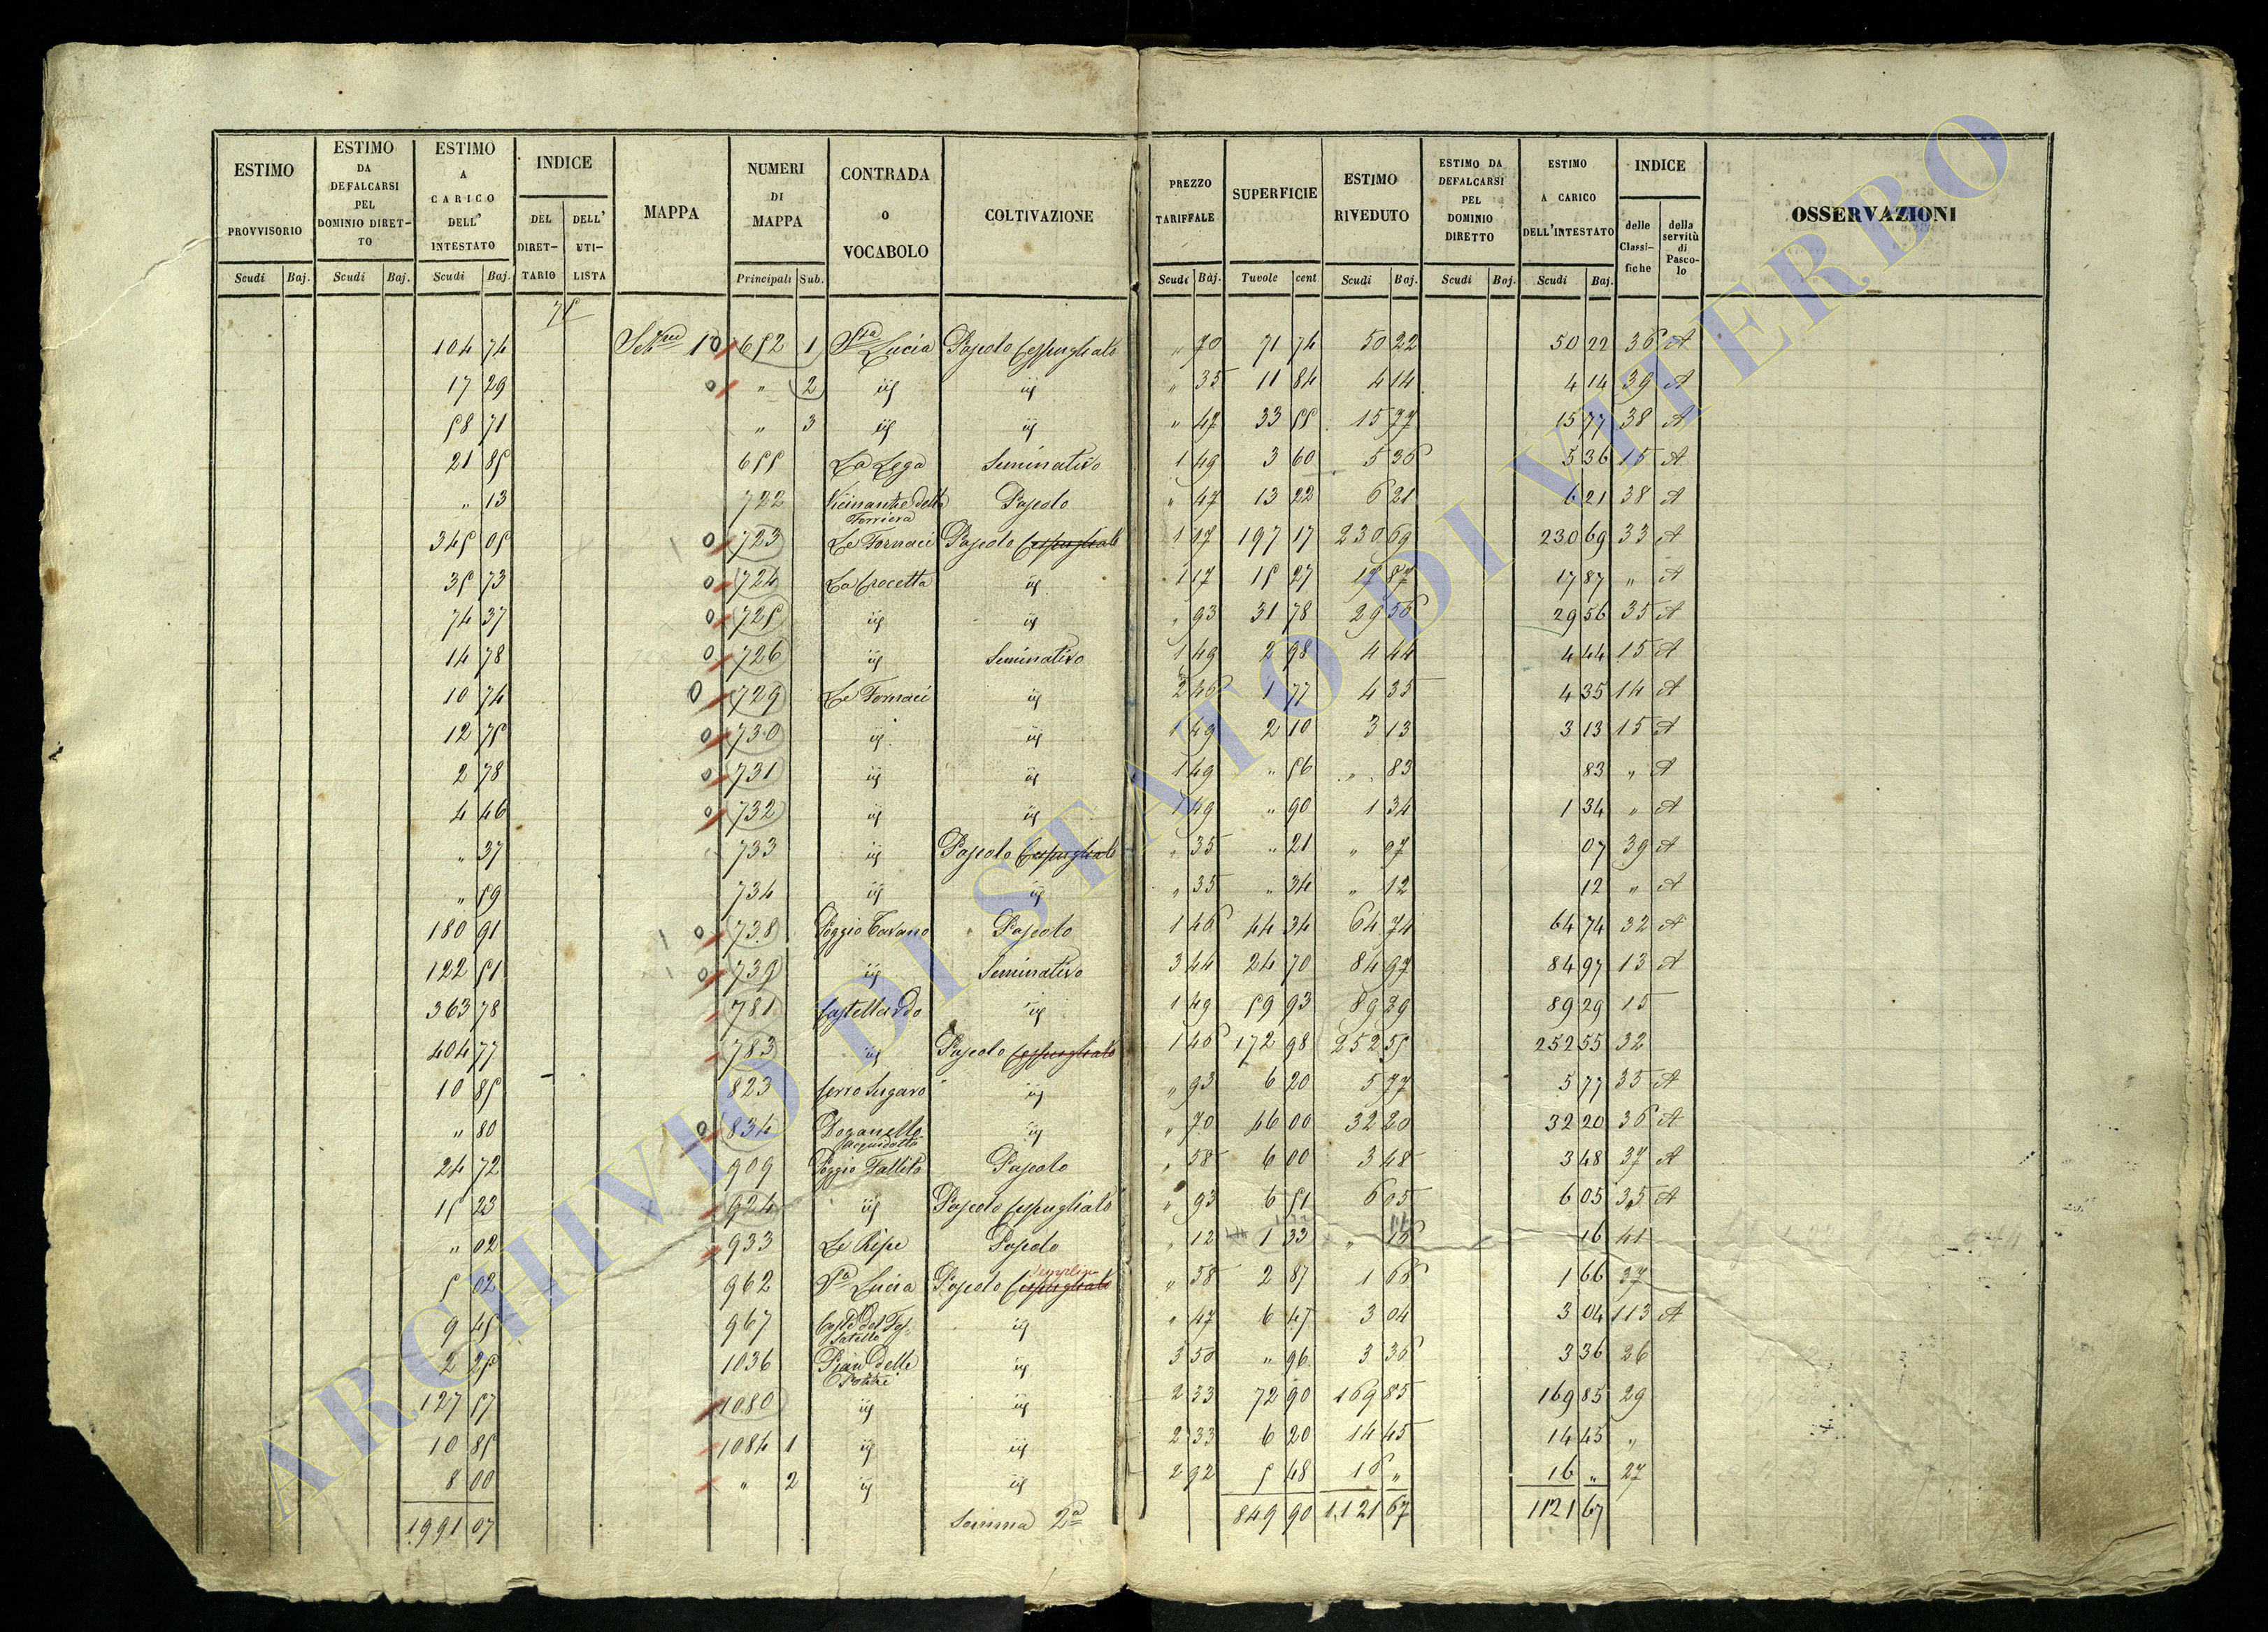 ESTIMO PROVVISORIO | ESTIMO DA DEFALCARSI PEL DOMINIO DIRET-TO | ESTIMO A CARICO DELL' INTESTATO | INDICE | MAPPA | NUMERI DI MAPPA | CONTRADA O VOCABOLO | COLTIVAZIONE | PREZZO TARIFFALE | SUPERFICIE | ESTIMO RIVEDUTO | ESTIMO DA DEFALCARSI PEL DOMINIO DIRETTO | ESTIMO A CARICO DELL'INTESTATO | INDICE | OSSERVAZIONI
DEL DIRET-TARIO | DELL' UTI-LISTA | delle Classi-fiche | della servitù di Pasco-lo
Scudi | Baj. | Scudi | Baj. | Scudi | Baj. | Principali | Sub. | Scudi | Baj. | Tavole | cent | Scudi | Baj. | Scudi | Baj. | Scudi | Baj.
104 74 | Sez.ne 1 | 0 652 | 1 | Sta Lucia | Pascolo Cespugliato | " 70 | 71 74 | 50 22 | 50 22 | 36 | A
17 29 | 0 " | 2 | id | id | " 35 | 11 84 | 4 14 | 4 14 | 39 | A
58 71 | " | 3 | id | id | " 47 | 33 55 | 15 77 | 15 77 | 38 | A
21 85 | 655 | La Lega | Seminativo | 1 49 | 3 60 | 5 36 | 5 36 | 15 | A
" 13 | 722 | Vicinanze della Ferriera | Pascolo | " 47 | 13 22 | 6 21 | 6 21 | 38 | A
345 05 | 0 723 | Le Fornaci | Pascolo Cespugliato | 1 17 | 197 17 | 230 69 | 230 69 | 33 | A
35 73 | 0 724 | La Crocetta | id | 1 17 | 15 27 | 17 87 | 17 87 | " | A
74 37 | 0 725 | id | id | " 93 | 31 78 | 29 56 | 29 56 | 35 | A
14 78 | 0 726 | id | Seminativo | 1 49 | 2 98 | 4 44 | 4 44 | 15 | A
10 74 | 0 729 | Le Fornaci | id | 2 46 | 1 77 | 4 35 | 4 35 | 14 | A
12 75 | 0 730 | id | id | 1 49 | 2 10 | 3 13 | 3 13 | 15 | A
2 78 | 0 731 | id | id | 1 49 | " 56 | " 83 | 83 | " | A
4 46 | 0 732 | id | id | 1 49 | " 90 | 1 34 | 1 34 | " | A
" 37 | 733 | id | Pascolo Cespugliato | " 35 | " 21 | " 07 | 07 | 39 | A
" 59 | 734 | id | id | " 35 | " 34 | " 12 | 12 | " | A
180 91 | 0 738 | Poggio Cavano | Pascolo | 1 46 | 44 34 | 64 74 | 64 74 | 32 | A
122 51 | 0 739 | id | Seminativo | 3 44 | 24 70 | 84 97 | 84 97 | 13 | A
363 78 | 781 | Castellardo | id | 1 49 | 59 93 | 89 29 | 89 29 | 15
404 77 | 783 | id | Pascolo Cespugliato | 1 46 | 172 98 | 252 55 | 252 55 | 32
10 85 | 823 | Cerro Sugaro | id | " 93 | 6 20 | 5 77 | 5 77 | 35 | A
" 80 | 0 834 | Doganella | id | " 70 | 46 00 | 32 20 | 32 20 | 36 | A
24 72 | 909 | Poggio Fallito | Pascolo | " 58 | 6 00 | 3 48 | 3 48 | 37 | A
15 23 | 924 | id | Pascolo Cespugliato | " 93 | 6 51 | 6 05 | 6 05 | 35 | A
" 02 | 933 | Le Ripe | Pascolo | " 12 | 1 33 | " 16 | 16 | 41
5 02 | 962 | Sa Lucia | Pascolo Cespugliato | " 58 | 2 87 | 1 66 | 1 66 | 37
9 45 | 967 | Coste del Fos-satello | id | " 47 | 6 47 | 3 04 | 3 04 | 113 | A
2 25 | 1036 | Pian delle | id | 3 50 | " 96 | 3 36 | 3 36 | 26
127 57 | 1080 | id | id | 2 33 | 72 90 | 169 85 | 169 85 | 29
10 85 | 1084 | 1 | id | id | 2 33 | 6 20 | 14 45 | 14 45 | "
8 00 | " | 2 | id | id | 2 92 | 5 48 | 16 " | 16 " | 27
1991 07 | Somma 2a | 849 90 | 1,121 67 | 1121 67
ARCHIVIO DI STATO DI VITERBO